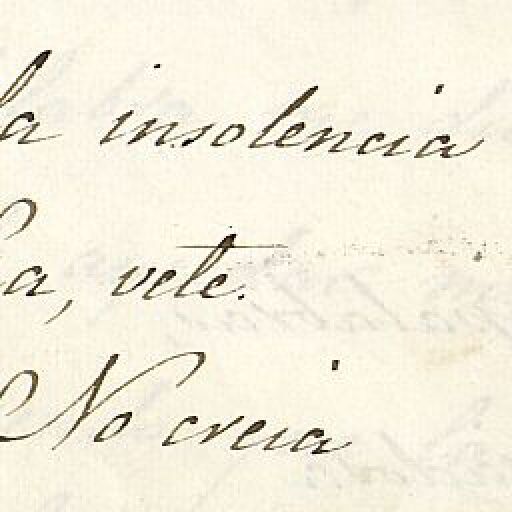 la insolencia
a, vete.
No creia